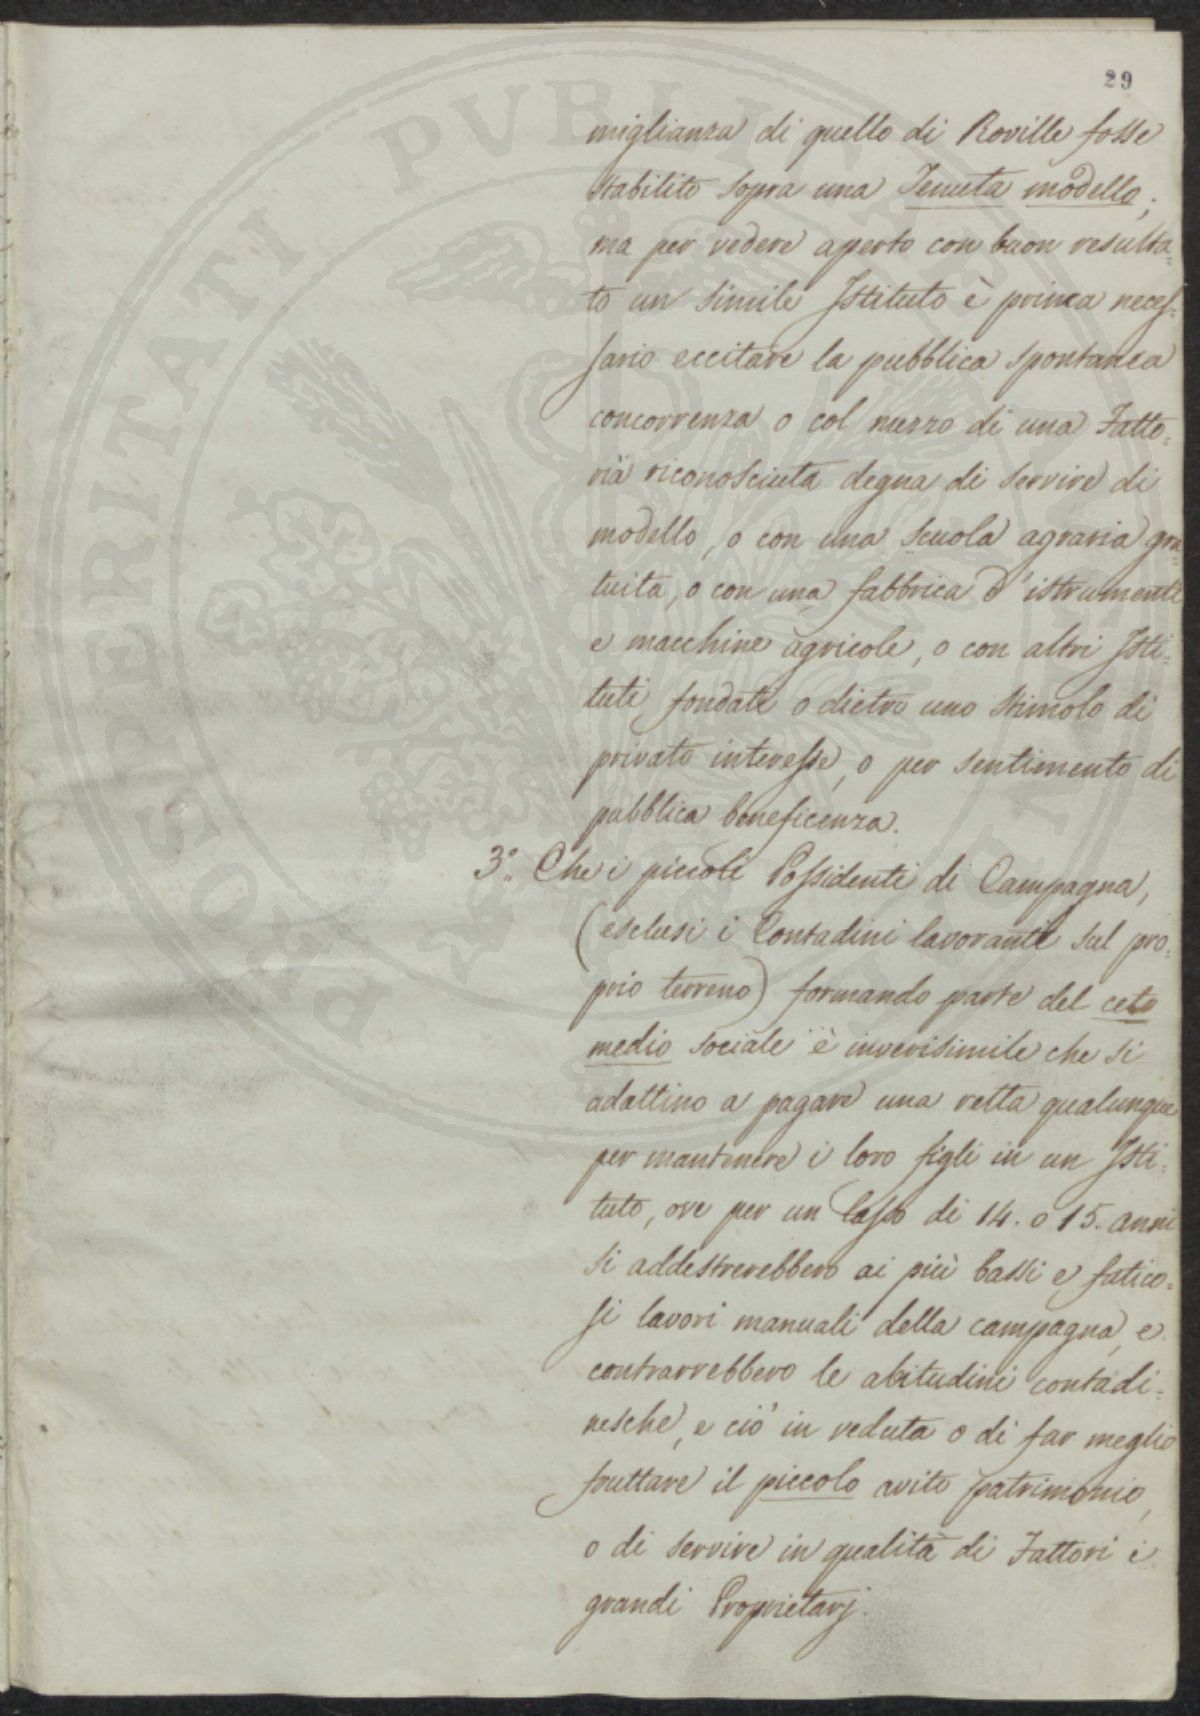 29
miglianza di quello di Roville fosse
stabilito sopra una Tenuta modello;
ma per vedere aperto con buon resulta=
to un simile Istituto è prima neces=
sario eccitare la pubblica spontanea
concorrenza o col mezzo di una Fatto=
ria riconosciuta degna di servire di
modello, o con una scuola agraria gra=
tuita, o con una fabbrica d'istrumenti
e macchine agricole, o con altri Isti=
tuti fondati o dietro uno stimolo di
privato interesse, o per sentimento di
pubblica beneficenza.
3.° Che i piccoli Possidenti di Campagna,
(esclusi i Contadini lavoranti sul pro=
prio terreno) formando parte del ceto
medio sociale è inverisimile che si
adattino a pagare una retta qualunque
per mantenere i loro figli in un Isti=
tuto, ove per un lasso di 14. o 15. anni
si addestrerebbero ai più bassi e fatico=
si lavori manuali della campagna, e
contrarrebbero le abitudini contadi=
nesche, e ciò in veduta o di far meglio
fruttare il piccolo avito patrimonio,
o di servire in qualità di Fattori i
grandi Proprietarj.
PROSPERITATI PVBLICAE